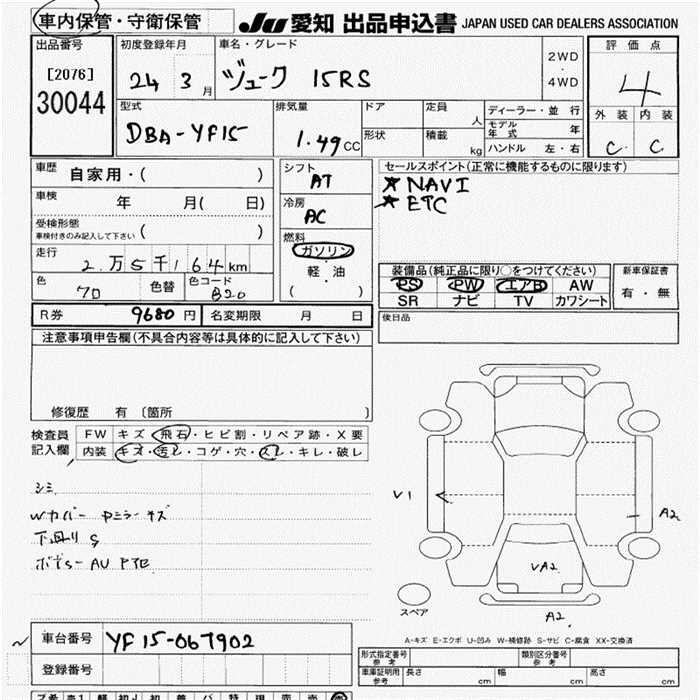 車内保管・守衛保管 JU 愛知 出品申込書 JAPAN USED CAR DEALERS ASSOCIATION
出品番号 初度登録年月 車名・グレード 評価点
[2076] 24 3月 ジューク 15RS 2WD・4WD 4
30044 型式 排気量 ドア 定員 人 ディーラー・並行 外装 内装
DBA-YF15 1.49CC 形状 積載 kg モデル年式 年 C C
ハンドル 左・右
車歴 自家用・( ) シフト AT セールスポイント(正常に機能するものに限ります)
車検 年 月( 日) 冷房 AC ★NAVI
受検形態 車検付きのみ記入して下さい ( ) ★ETC
走行 2万5千164km 燃料 ガソリン・軽・油 ( )
装備品(純正品に限り○をつけてください) 新車保証書
色 クロ 色替 色コード B20 PS PW エアB AW 有・無
SR ナビ TV カワシート
R券 9680円 名変期限 月 日 後日品
注意事項申告欄(不具合内容等は具体的に記入して下さい)
修復歴 有 [箇所 ]
検査員記入欄 FW キズ・飛石・ヒビ割・リペア跡・X要
内装 キズ・汚レ・コゲ・穴・スレ・キレ・破レ
シミ
Wカバー Pミラーキズ
下回り S
V1
A2
VA2
A2
スペア
A-キズ E-エクボ U-凹み W-補修跡 S-サビ C-腐食 XX-交換済
車台番号 YF15-067902
登録番号
形式指定番号 参考 類別区分番号 参考
車庫証明用 参考 長さ cm 幅 cm 高さ cm